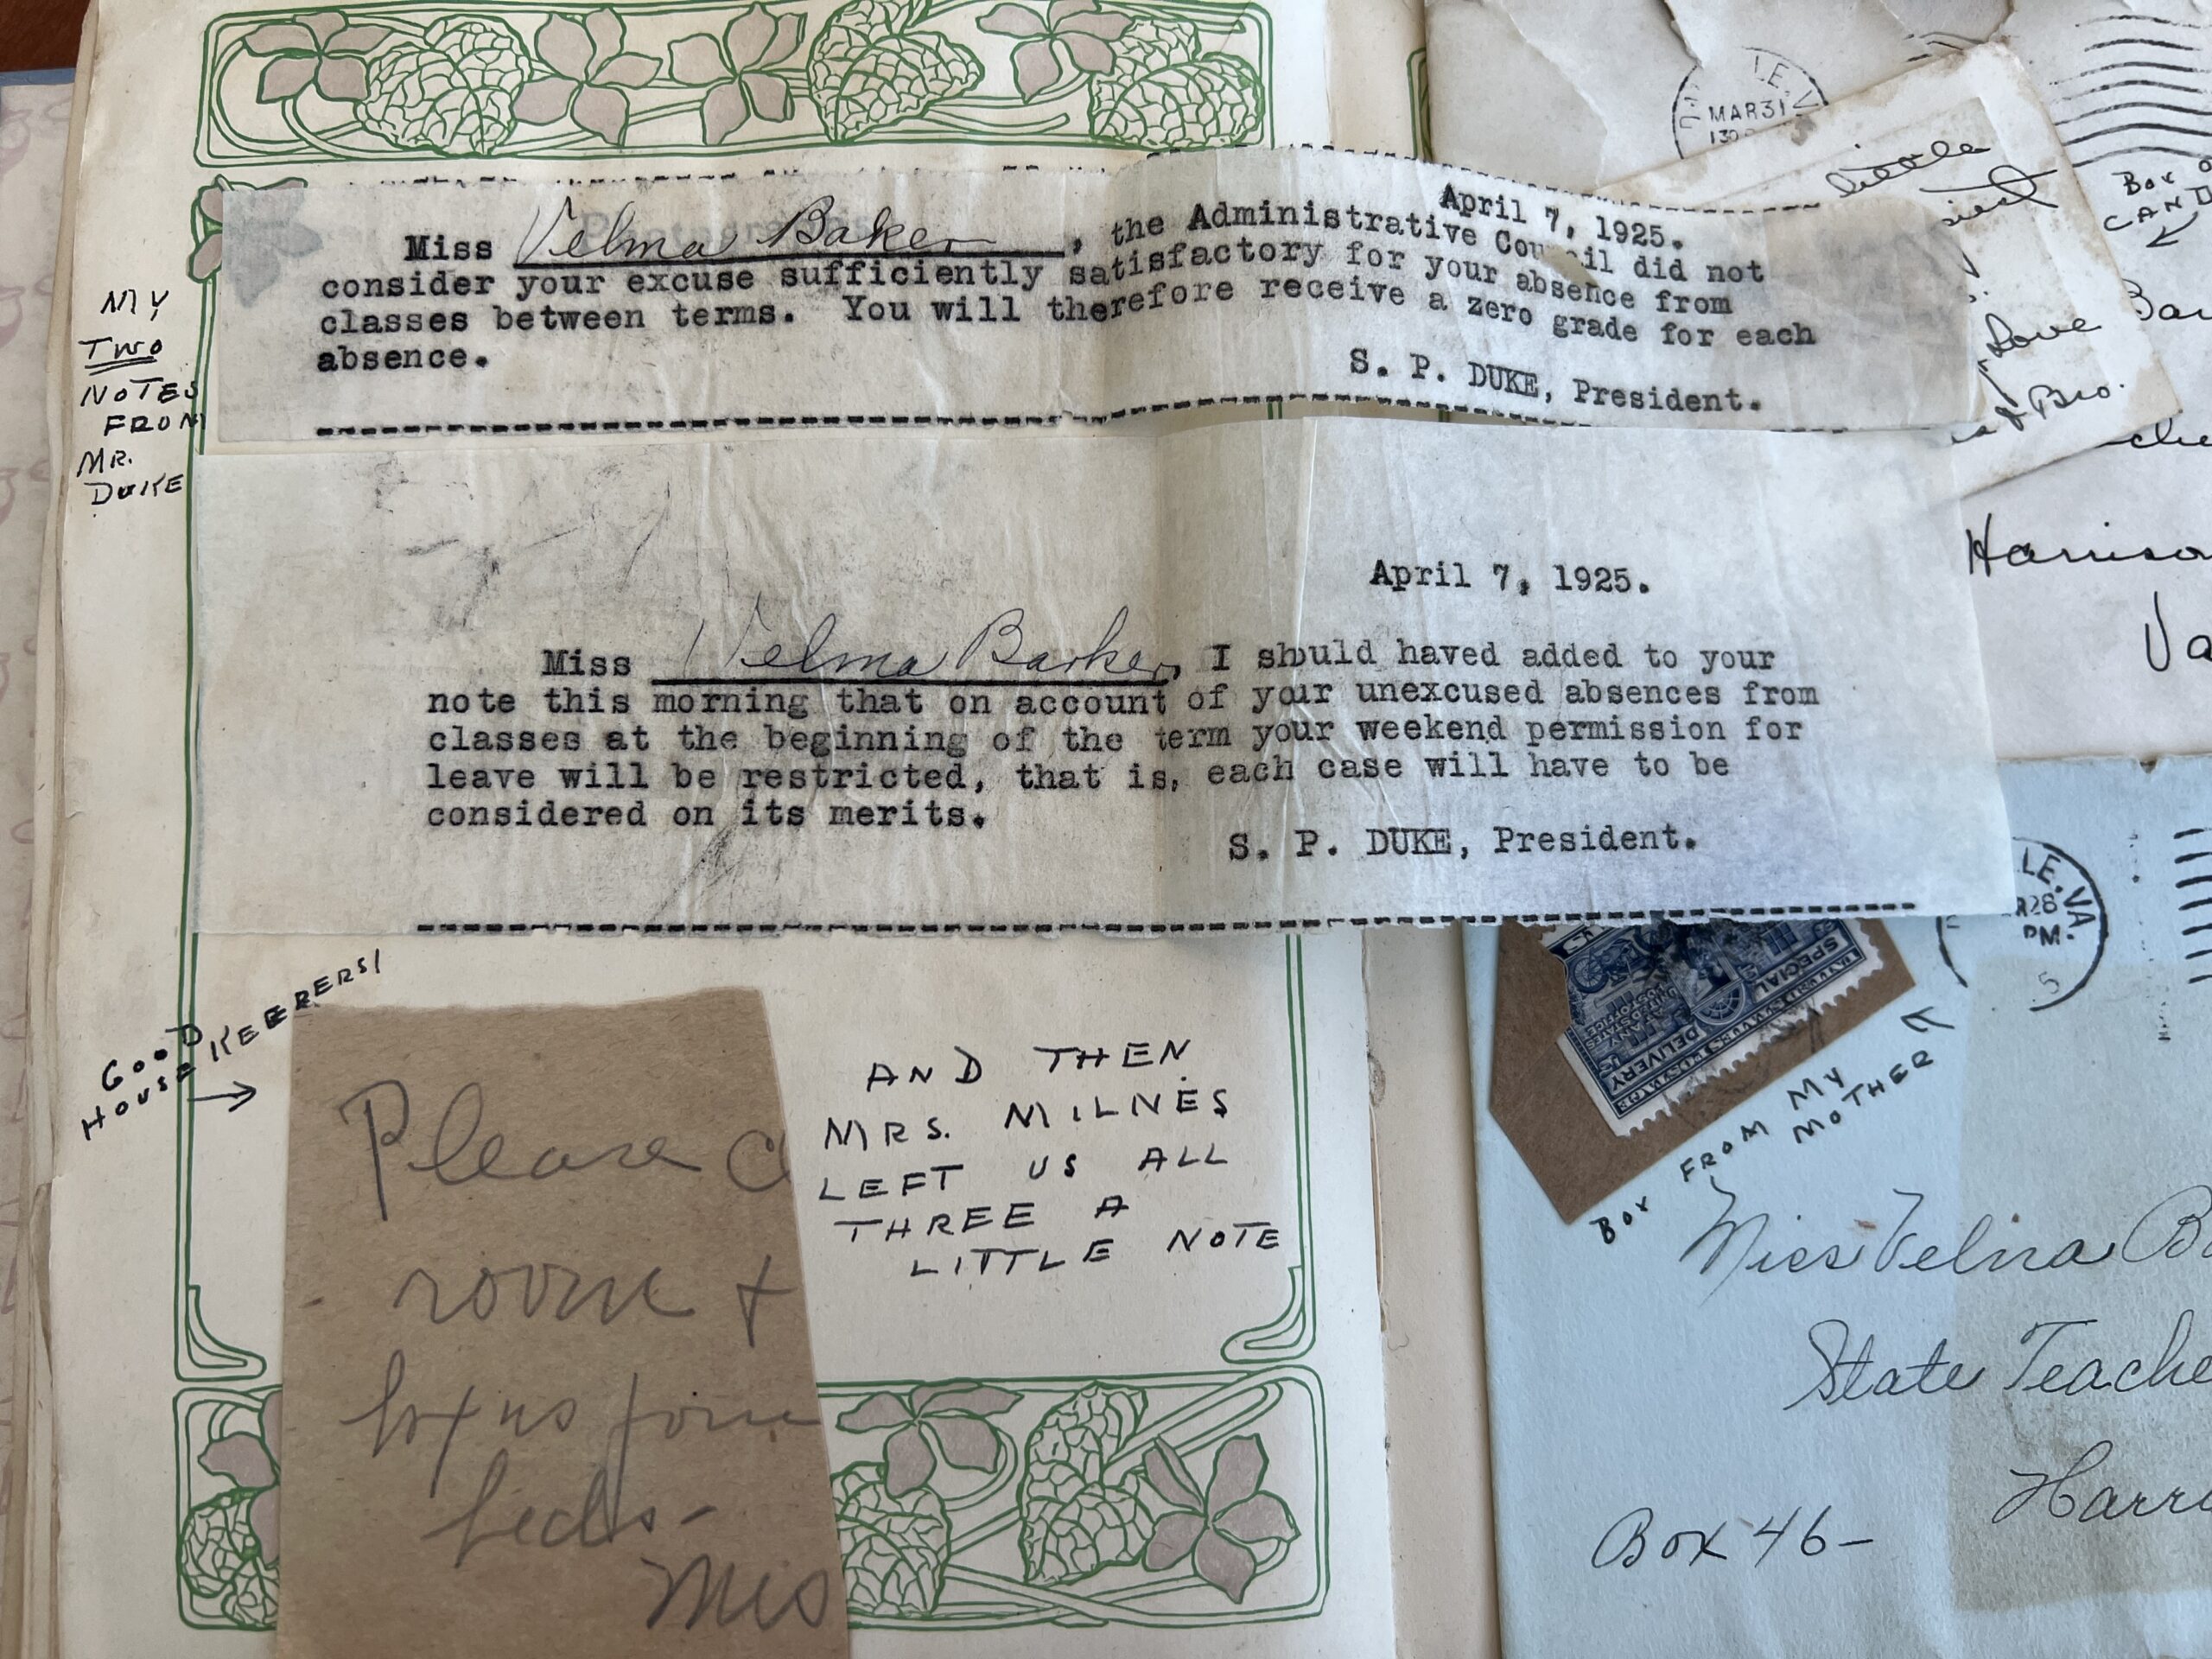 April 7, 1925.
Miss Velma Baker, the Administrative Council did not
consider your excuse sufficiently satisfactory for your absence from
classes between terms. You will therefore receive a zero grade for each
absence.
S. P. DUKE, President.
MY
TWO
NOTES
FROM
MR.
DUKE
April 7, 1925.
Miss Velma Barker, I should haved added to your
note this morning that on account of your unexcused absences from
classes at the beginning of the term your weekend permission for
leave will be restricted, that is, each case will have to be
considered on its merits.
S. P. DUKE, President.
GOOD
HOUSEKEEPERS!
Please
room +
beds-
AND THEN
MRS. MILNES
LEFT US ALL
THREE A
LITTLE NOTE
MAR 31
BOX
CAND
Love
Bro.
Harriso
Va
LE. VA.
28
PM.
5
SPECIAL
DELIVERY
UNITED STATES
POST OFFICE
BOX FROM MY
MOTHER
Miss Velma B
State Teache
Harr
Box 46-